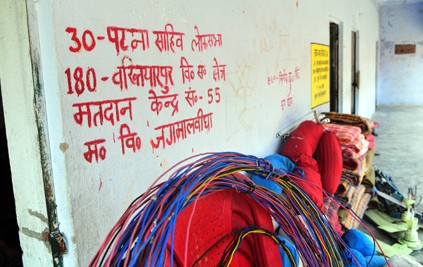 30-पटना साहिब लोकसभा
180-बख्तियारपुर वि० स० क्षेत्र
मतदान केन्द्र सं०-55
म० वि० जगमालवीघा